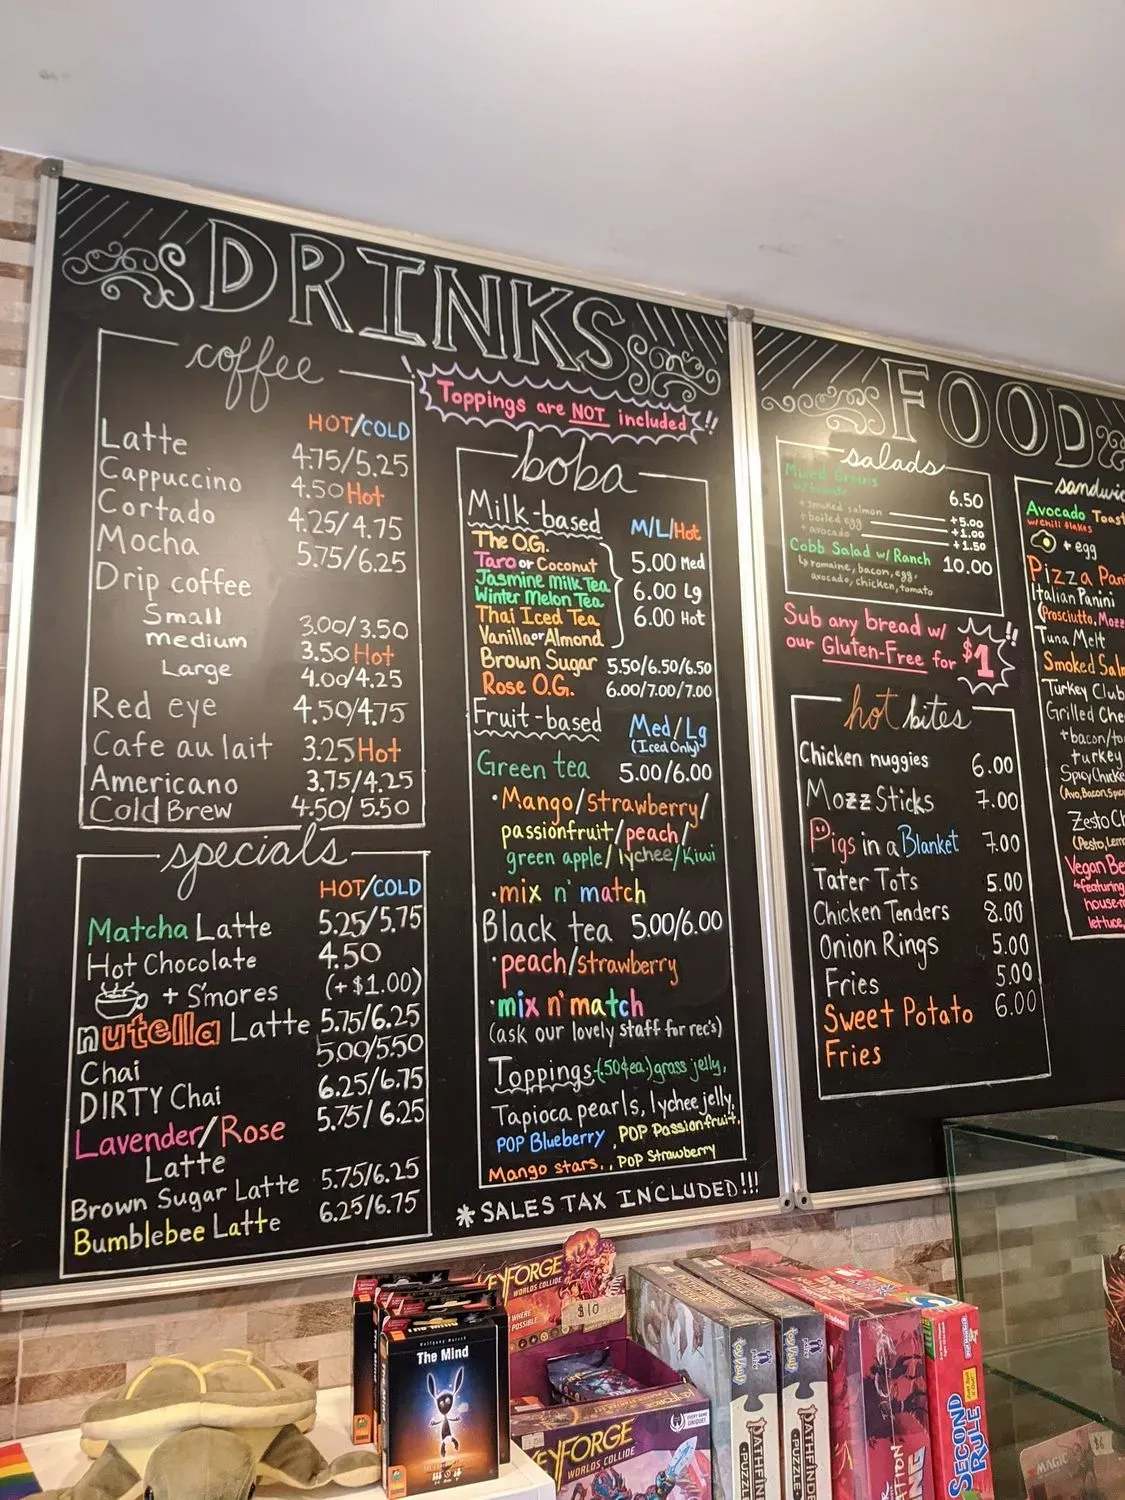 DRINKS
coffee
HOT/COLD
Latte 4.75/5.25
Cappuccino 4.50 Hot
Cortado 4.25/4.75
Mocha 5.75/6.25
Drip coffee
Small 3.00/3.50
medium 3.50 Hot
Large 4.00/4.25
Red eye 4.50/4.75
Cafe au lait 3.25 Hot
Americano 3.75/4.25
Cold Brew 4.50/5.50
specials
HOT/COLD
Matcha Latte 5.25/5.75
Hot Chocolate 4.50
+ S'mores (+$1.00)
nutella Latte 5.75/6.25
Chai 5.00/5.50
DIRTY Chai 6.25/6.75
Lavender/Rose 5.75/6.25
Latte
Brown Sugar Latte 5.75/6.25
Bumblebee Latte 6.25/6.75
Toppings are NOT included!!
boba
Milk-based M/L/Hot
The O.G.
Taro or Coconut 5.00 Med
Jasmine Milk Tea
Winter Melon Tea 6.00 Lg
Thai Iced Tea 6.00 Hot
Vanilla or Almond
Brown Sugar 5.50/6.50/6.50
Rose O.G. 6.00/7.00/7.00
Fruit-based Med/Lg
(Iced Only)
Green tea 5.00/6.00
·Mango/strawberry/
passionfruit/peach/
green apple/lychee/Kiwi
·mix n' match
Black tea 5.00/6.00
·peach/strawberry
·mix n' match
(ask our lovely staff for rec's)
Toppings (.50¢ea.) grass jelly,
Tapioca pearls, lychee jelly,
POP Blueberry, POP Passionfruit,
Mango stars, , POP Strawberry
* SALES TAX INCLUDED!!!
FOOD
salads
Mixed Greens 6.50
+smoked salmon +5.00
+boiled egg +1.00
+avocado +1.50
Cobb Salad w/ Ranch 10.00
romaine, bacon, egg,
avocado, chicken, tomato
Sub any bread w/
our Gluten-Free for $1!!
hot bites
Chicken nuggies 6.00
Mozz Sticks 7.00
Pigs in a Blanket 7.00
Tater Tots 5.00
Chicken Tenders 8.00
Onion Rings 5.00
Fries 5.00
Sweet Potato 6.00
Fries
sandwic
Avocado Toast
w/chili flakes
+ egg
Pizza Pani
Italian Panini
(Prosciutto, Mozz
Tuna Melt
Smoked Salm
Turkey Club
Grilled Chee
+bacon/to
+turkey
Spicy Chicke
(Avo, Bacon, Spic
Zesto Ch
(Pesto, Lem
Vegan Be
featuring
house-m
lettuce,
KEYFORGE
WORLDS COLLIDE
WHERE
POSSIBLE
$10
The Mind
Wolfgang Warsch
The Mind
KEYFORGE
WORLDS COLLIDE
EVERY GAME
UNIQUE!
toyVault
PATHFINDER
PUZZLE
toyVault
PATHFINDER
PUZZLE
SECOND
RULE
MAGIC
$6